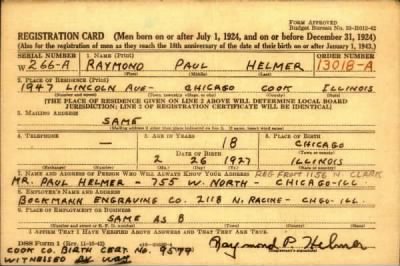 FORM APPROVED
Budget Bureau No. 33-R012-42
REGISTRATION CARD (Men born on or after July 1, 1924, and on or before December 31, 1924)
(Also for the registration of men as they reach the 18th anniversary of the date of their birth on or after January 1, 1943.)
SERIAL NUMBER 1. NAME (Print) ORDER NUMBER
W 266-A RAYMOND PAUL HELMER 13018-A
(First) (Middle) (Last)
2. PLACE OF RESIDENCE (Print)
1947 LINCOLN AVE- CHICAGO COOK ILLINOIS
(Number and street) (Town, township, village, or city) (County) (State)
[THE PLACE OF RESIDENCE GIVEN ON LINE 2 ABOVE WILL DETERMINE LOCAL BOARD
JURISDICTION; LINE 2 OF REGISTRATION CERTIFICATE WILL BE IDENTICAL]
3. MAILING ADDRESS
SAME
(Mailing address if other than place indicated on line 2. If same, insert word same)
4. TELEPHONE 5. AGE IN YEARS 6. PLACE OF BIRTH
— 18 CHICAGO
DATE OF BIRTH (Town or county)
2 26 1927 ILLINOIS
(Exchange) (Number) (Mo.) (Day) (Yr.) (State or country)
7. NAME AND ADDRESS OF PERSON WHO WILL ALWAYS KNOW YOUR ADDRESS REG FROM 1156 N. CLARK
MR. PAUL HELMER - 755 W. NORTH - CHICAGO-ILL.
8. EMPLOYER'S NAME AND ADDRESS
BOCKMANN ENGRAVING CO. 2118 N. RACINE- CHGO-ILL.
9. PLACE OF EMPLOYMENT OR BUSINESS
SAME AS 8
(Number and street or R. F. D. number) (Town) (County) (State)
I AFFIRM THAT I HAVE VERIFIED ABOVE ANSWERS AND THAT THEY ARE TRUE.
DSS Form 1 (Rev. 11-16-42) Raymond P. Helmer
COOK CO. BIRTH CERT. NO. (Registrant's signature)
WITNESSED BY